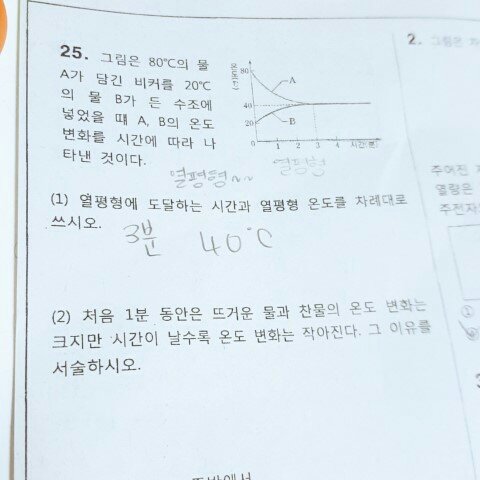 25. 그림은 80℃의 물
A가 담긴 비커를 20℃
의 물 B가 든 수조에
넣었을 때 A, B의 온도
변화를 시간에 따라 나
타낸 것이다.
온도(℃)
80
40
20
A
B
0 1 2 3 4 시간(분)
열평형~~ 열평형
(1) 열평형에 도달하는 시간과 열평형 온도를 차례대로
쓰시오.
3분 40℃
(2) 처음 1분 동안은 뜨거운 물과 찬물의 온도 변화는
크지만 시간이 날수록 온도 변화는 작아진다. 그 이유를
서술하시오.
2. 그림은
주어진
열량은
주전자
①